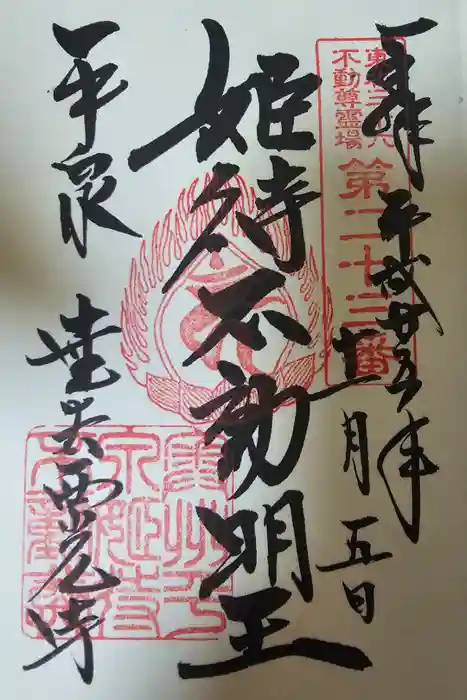 奉拝
平成廿五年
十一月五日
東北三十六
不動尊霊場
第二十三番
姫待不動明王
平泉
達谷西光寺